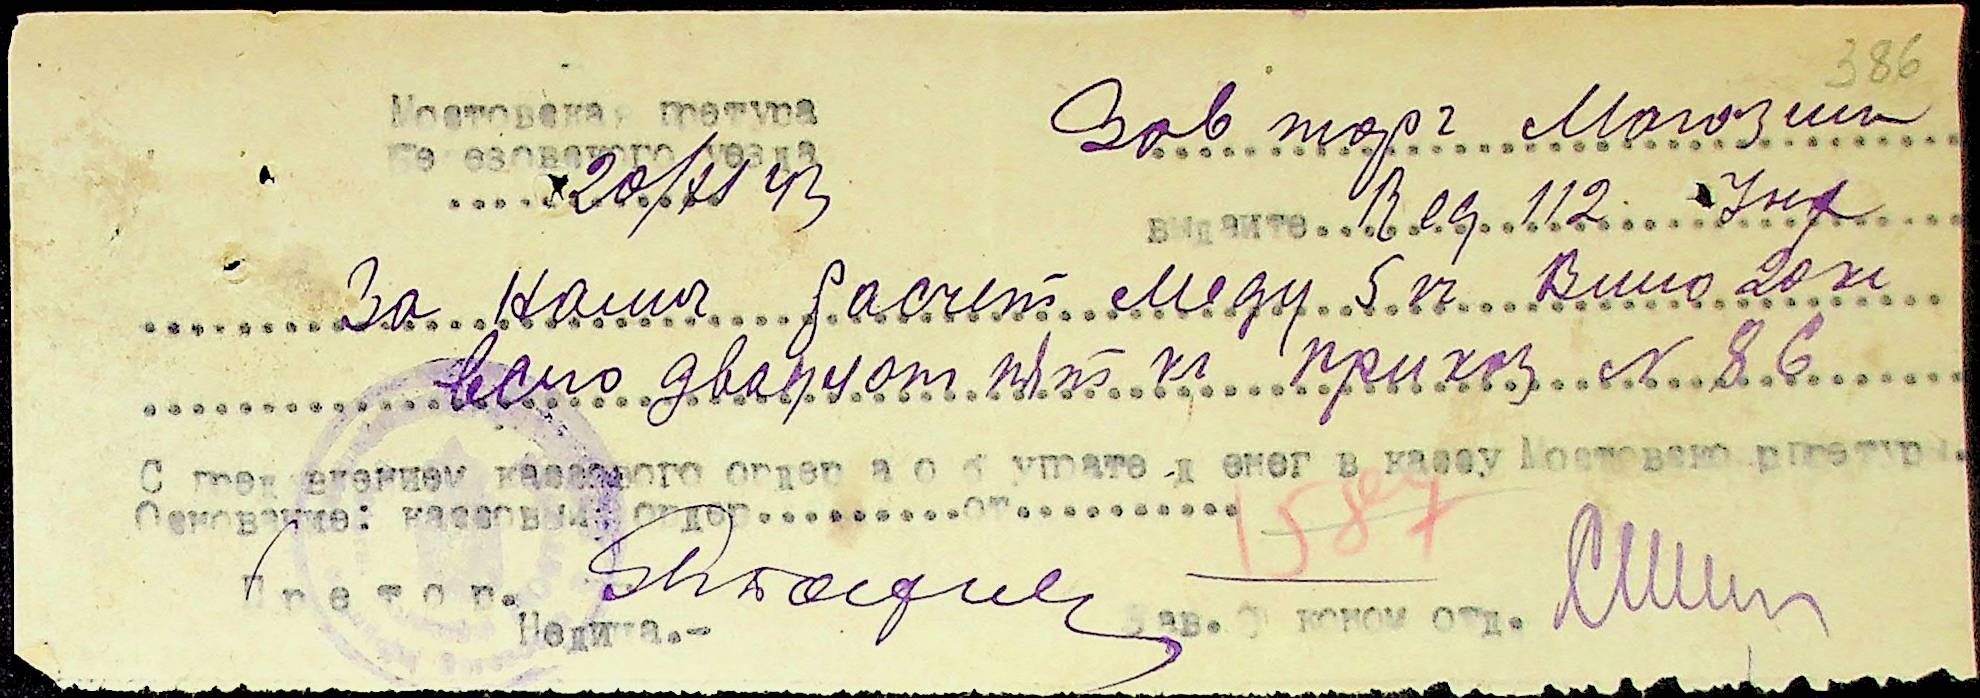 386
Мостовская претура
Березовского уезда
20/XI 43
Зав торг Магозин
выдайте Вед 112
За наш расчет меду 5 кг Вино 20 кг
всего двадцат пят кг приказ № 86
С пред'влением кассового ордера об уплате денег в кассу Мостовско претуры.
Основание: кассовый ордер..........от...........
1587
Претор.
Недича.-
Зав. Эконом отд.